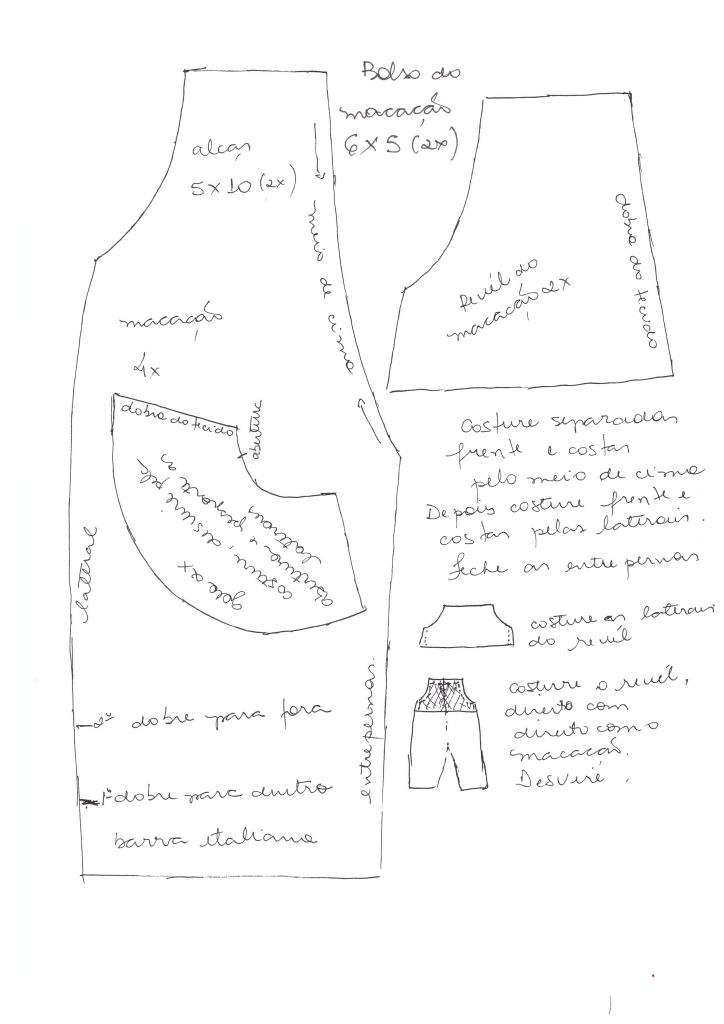 Bolso do
macacão
6x5 (2x)
alças
5x10 (2x)
meio de cima
macacão
4x
dobra do tecido
abertura
gola 2x
costure, desvire pela
abertura e pesponte as
laterais
lateral
entrepernas.
2º dobre para fora
1º dobre para dentro
barra italiana
Revél do
macacão 2x
dobra do tecido
Costure separadas
frente e costas
pelo meio de cima
Depois costure frente e
costas pelas laterais.
feche as entrepernas
costure as laterais
do revél
costure o revél,
direito com
direito com o
macacão.
Desvire.